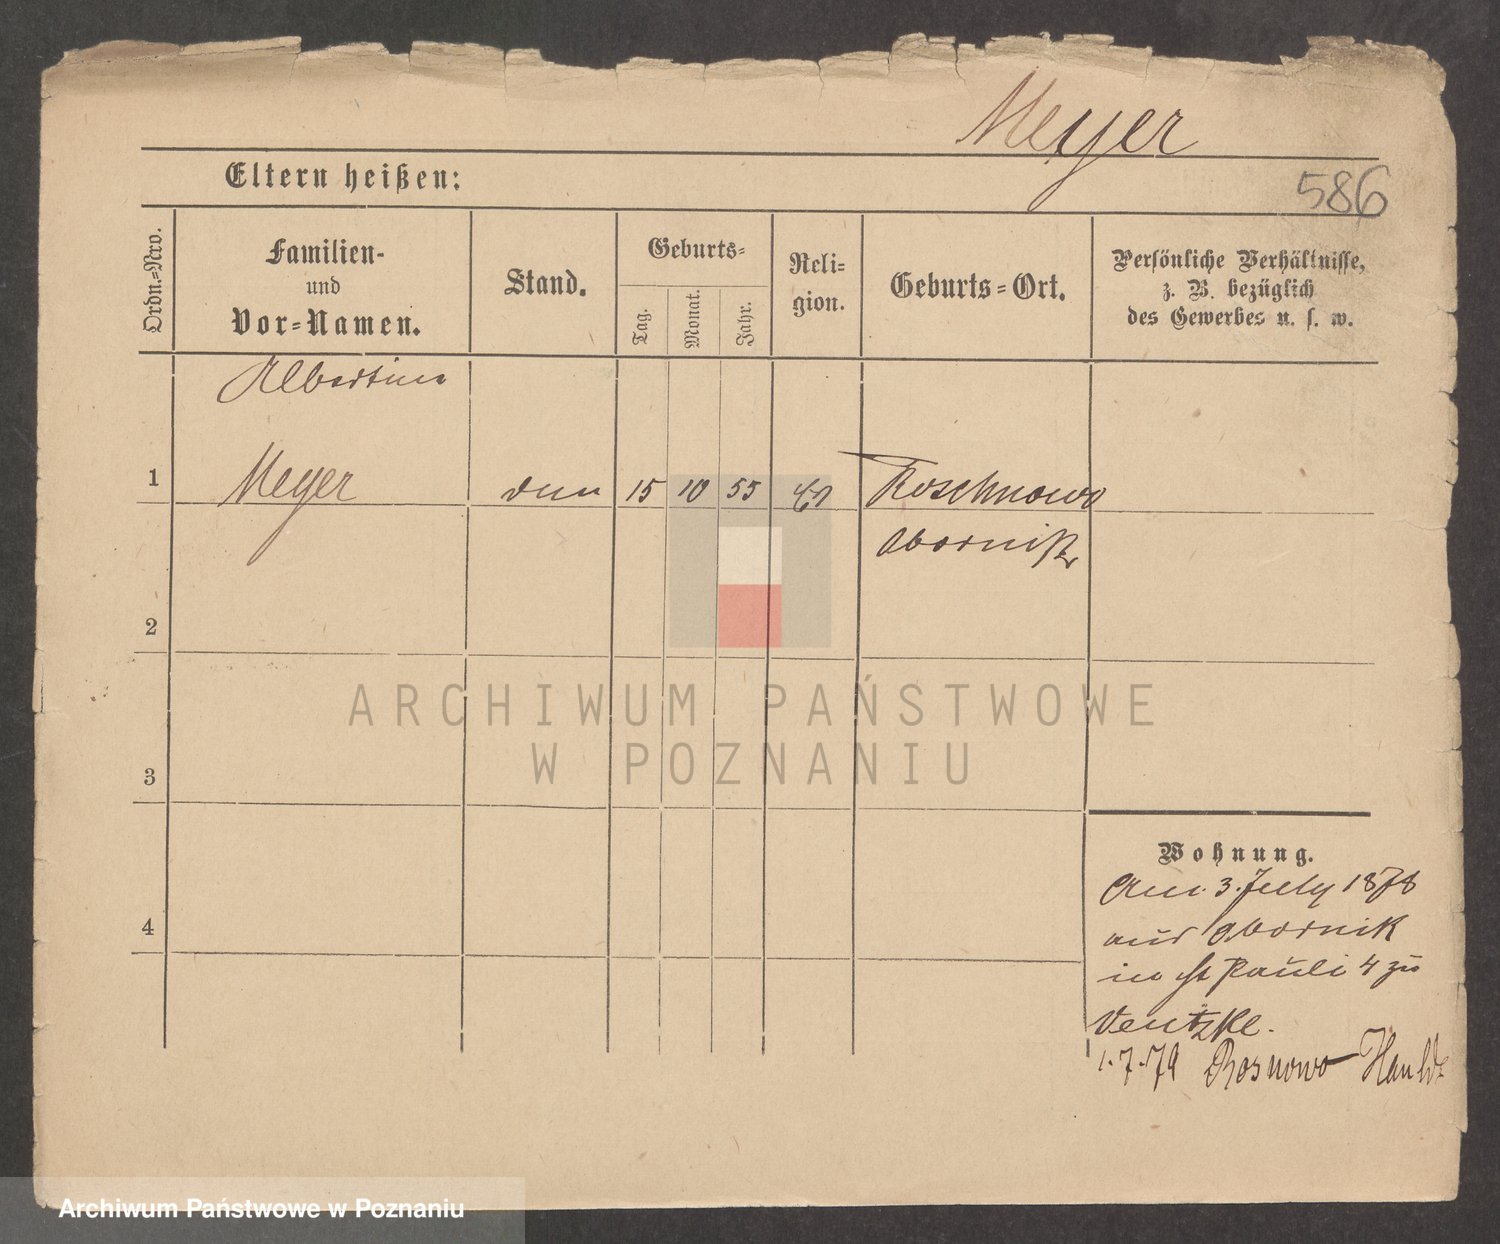 Meyer
Eltern heißen:
586
Ordn.=Nro.
Familien-
und
Vor=Namen.
Stand.
Geburts=
Tag.
Monat.
Jahr.
Reli=
gion.
Geburts=Ort.
Persönliche Verhältnisse,
z. B. bezüglich
des Gewerbes u. s. w.
Albertine
1
Meyer
15
10
55
Roschnowo
Obornik
2
3
4
ARCHIWUM PAŃSTWOWE
W POZNANIU
Wohnung.
Am 3. July 1878
aus Obornik
in St Pauli 4 zu
Ventzke.
1.7.79 Rosnowo
Archiwum Państwowe w Poznaniu